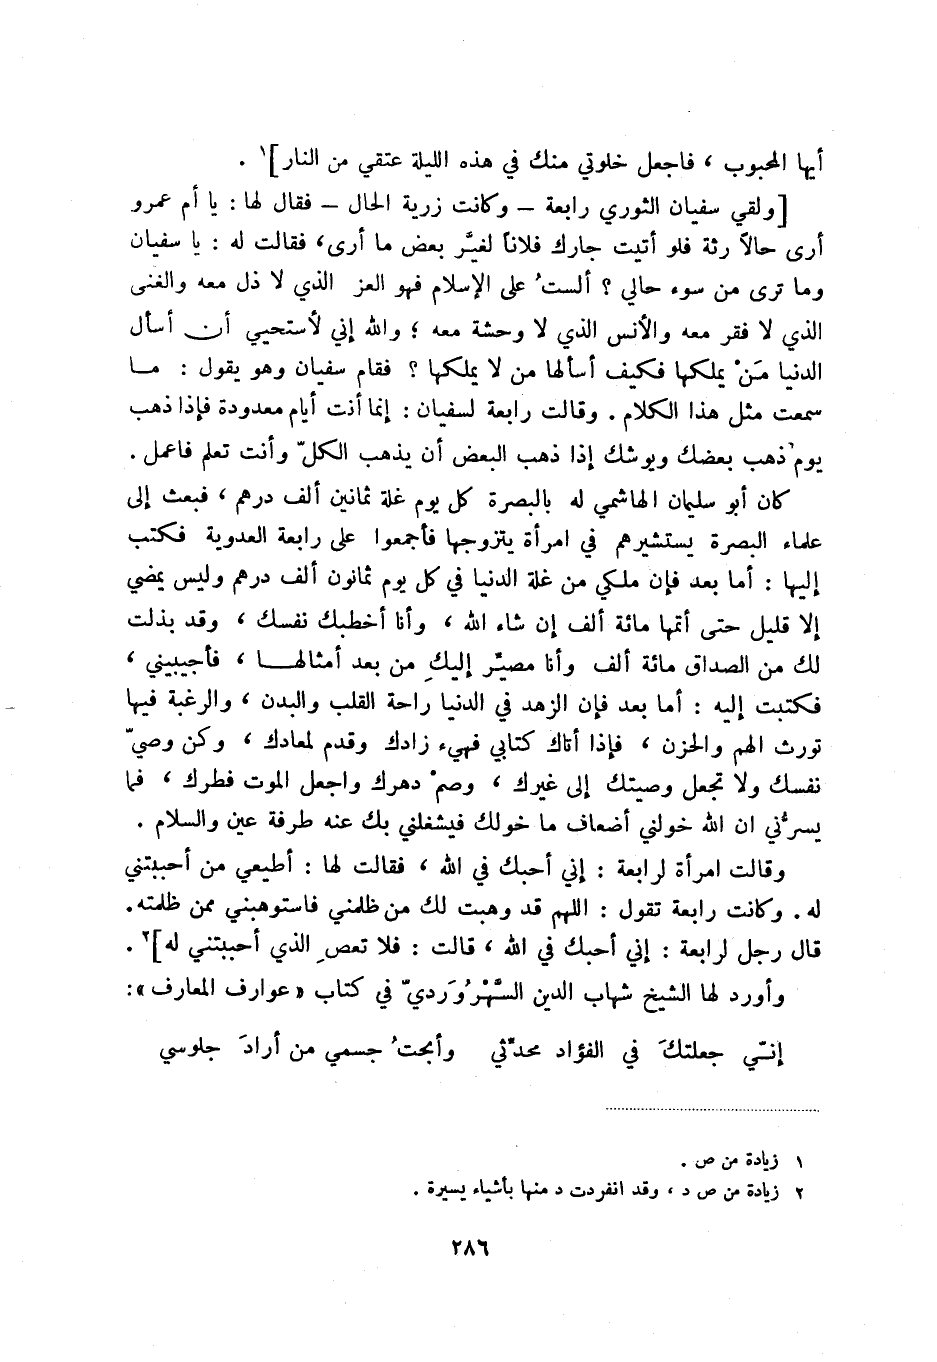 أيها المحبوب ، فاجعل خلوتي منك في هذه الليلة عتقي من النار]١ .
[ولقي سفيان الثوري رابعة – وكانت زرية الحال – فقال لها : يا أم عمرو
أرى حالاً رثة فلو أتيت جارك فلاناً لغيَّر بعض ما أرى، فقالت له : يا سفيان
وما ترى من سوء حالي ؟ ألستُ على الإسلام فهو العز الذي لا ذل معه والغنى
الذي لا فقر معه والأنس الذي لا وحشة معه ؛ والله إني لأستحيي أن أسأل
الدنيا مَنْ يملكها فكيف أسألها من لا يملكها ؟ فقام سفيان وهو يقول : ما
سمعت مثل هذا الكلام . وقالت رابعة لسفيان : إنما أنت أيام معدودة فإذا ذهب
يوم ذهب بعضك ويوشك إذا ذهب البعض أن يذهب الكلّ وأنت تعلم فاعمل .
كان أبو سليمان الهاشمي له بالبصرة كل يوم غلة ثمانين ألف درهم ، فبعث إلى
علماء البصرة يستشيرهم في امرأة يتزوجها فأجمعوا على رابعة العدوية فكتب
إليها : أما بعد فإن ملكي من غلة الدنيا في كل يوم ثمانون ألف درهم وليس يمضي
إلا قليل حتى أتمها مائة ألف إن شاء الله ، وأنا أخطبك نفسك ، وقد بذلت
لك من الصداق مائة ألف وأنا مصيّر إليكِ من بعد أمثالها ، فأجيبيني ،
فكتبت إليه : أما بعد فإن الزهد في الدنيا راحة القلب والبدن ، والرغبة فيها
تورث الهم والحزن ، فإذا أتاك كتابي فهيء زادك وقدم لمعادك ، وكن وصيّ
نفسك ولا تجعل وصيتك إلى غيرك ، وصمْ دهرك واجعل الموت فطرك ، فما
يسرُّني ان الله خولني أضعاف ما خولك فيشغلني بك عنه طرفة عين والسلام .
وقالت امرأة لرابعة : إني أحبك في الله ، فقالت لها : أطيعي من أحببتني
له . وكانت رابعة تقول : اللهم قد وهبت لك من ظلمني فاستوهبني ممن ظلمته.
قال رجل لرابعة : إني أحبك في الله ، قالت : فلا تعصِ الذي أحببتني له]٢ .
وأورد لها الشيخ شهاب الدين السُّهْرُوَرديّ في كتاب «عوارف المعارف»:
إنّي جعلتكَ في الفؤاد محدّثي وأبحتُ جسمي من أرادَ جلوسي
١ زيادة من ص .
٢ زيادة من ص د ، وقد انفردت د منها بأشياء يسيرة .
٢٨٦